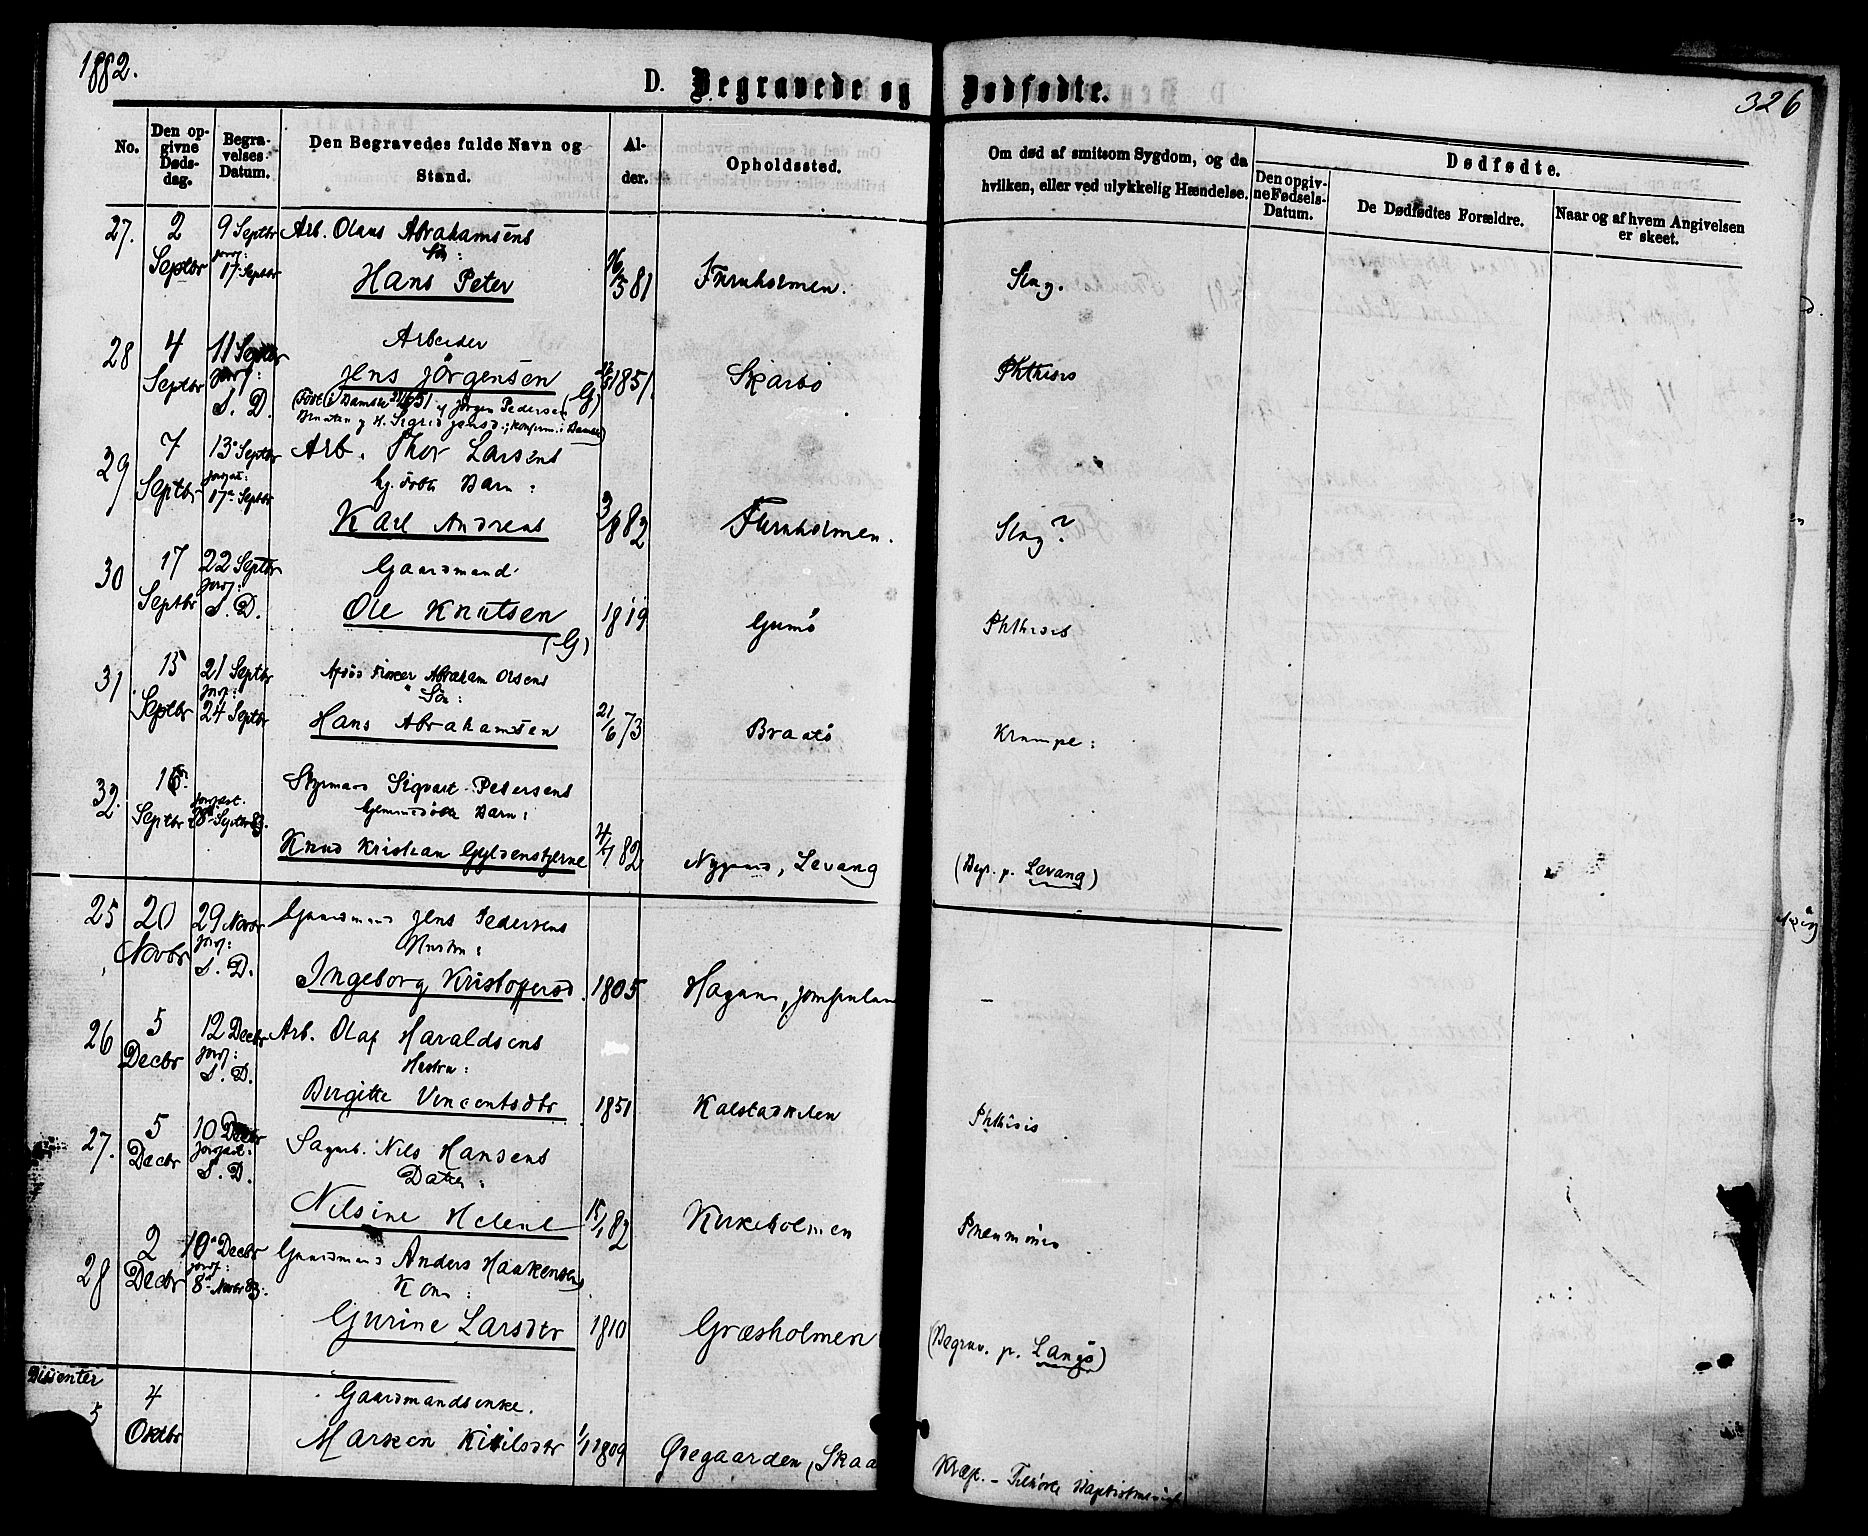 1882.
D. Begravede og Dødfødte.
326
No.
Den opgivne Dødsdag.
Begravelses Datum.
Den Begravedes fulde Navn og Stand.
Alder.
Opholdssted.
Om død af smitsom Sygdom, og da hvilken, eller ved ulykkelig Hændelse.
Dødfødte.
Den opgivne Fødsels-Datum.
De Dødfødtes Forældre.
Naar og af hvem Angivelsen er skeet.
27. 2 Septbr 9 Septbr 17 Septbr Arb. Olaus Abrahamsens
Søn:
Hans Peter 81 Furuholmen. Slag.
28 4 Septbr 11 Septbr S. D. Arbeider
Jens Jörgensen (G) 1851. Skarbö Phthisis
Jørgen Pedersen
29 7 Septbr 13 Septbr 17 Septbr Arb. Thor Larsens
hj. døbte Barn:
Karl Andreas 82 Furuholmen. Slag?
30 17 Septbr 22 Septbr S. D. Gaardmand
Ole Knutsen (G) 1819 Gumö Phthisis
31. 15 Septbr 21 Septbr 24 Septbr Abraham Olsens
Søn:
Hans Abrahamsen 21/6 73 Braatö Krampe:
32. Septbr Septbr 83. Styrmand Sigvart Petersens
hjemmedøbte Barn:
Knud Kristian Gyldenstjerne 82 Nygaard, Levang (Begr. p. Levang)
25 20 Novbr 29 Novbr S. D. Gaardmand Jens Pedersens
Hustru:
Ingeborg Kristoffersd. 1805 Hagane, Jomfruland –
26 5 Decbr 12 Decbr S. D. Arb. Olaf Haraldsens
Hustru:
Birgitte Vincentsdtr 1851 Kalstadkilen Phthisis
27. 5 Decbr 10 Decbr S. D. Sagarb. Nils Hansens
Datter:
Nilsine Helene 15/1 82 Kirkeholmen Pneumonie
28 2 Decbr 10 Decbr 8 Novbr 83. Gaardmand Anders Haakensens
Kone:
Gurine Larsdtr 1810 Græsholmen (Begrav. p. Langö)
Dissenter
5 4 Oktbr Gaardmandsenke.
Maren Kittilsdtr 1809 Ødegaarden, Skaa Kræft. – Tilhørte Baptistmenigh